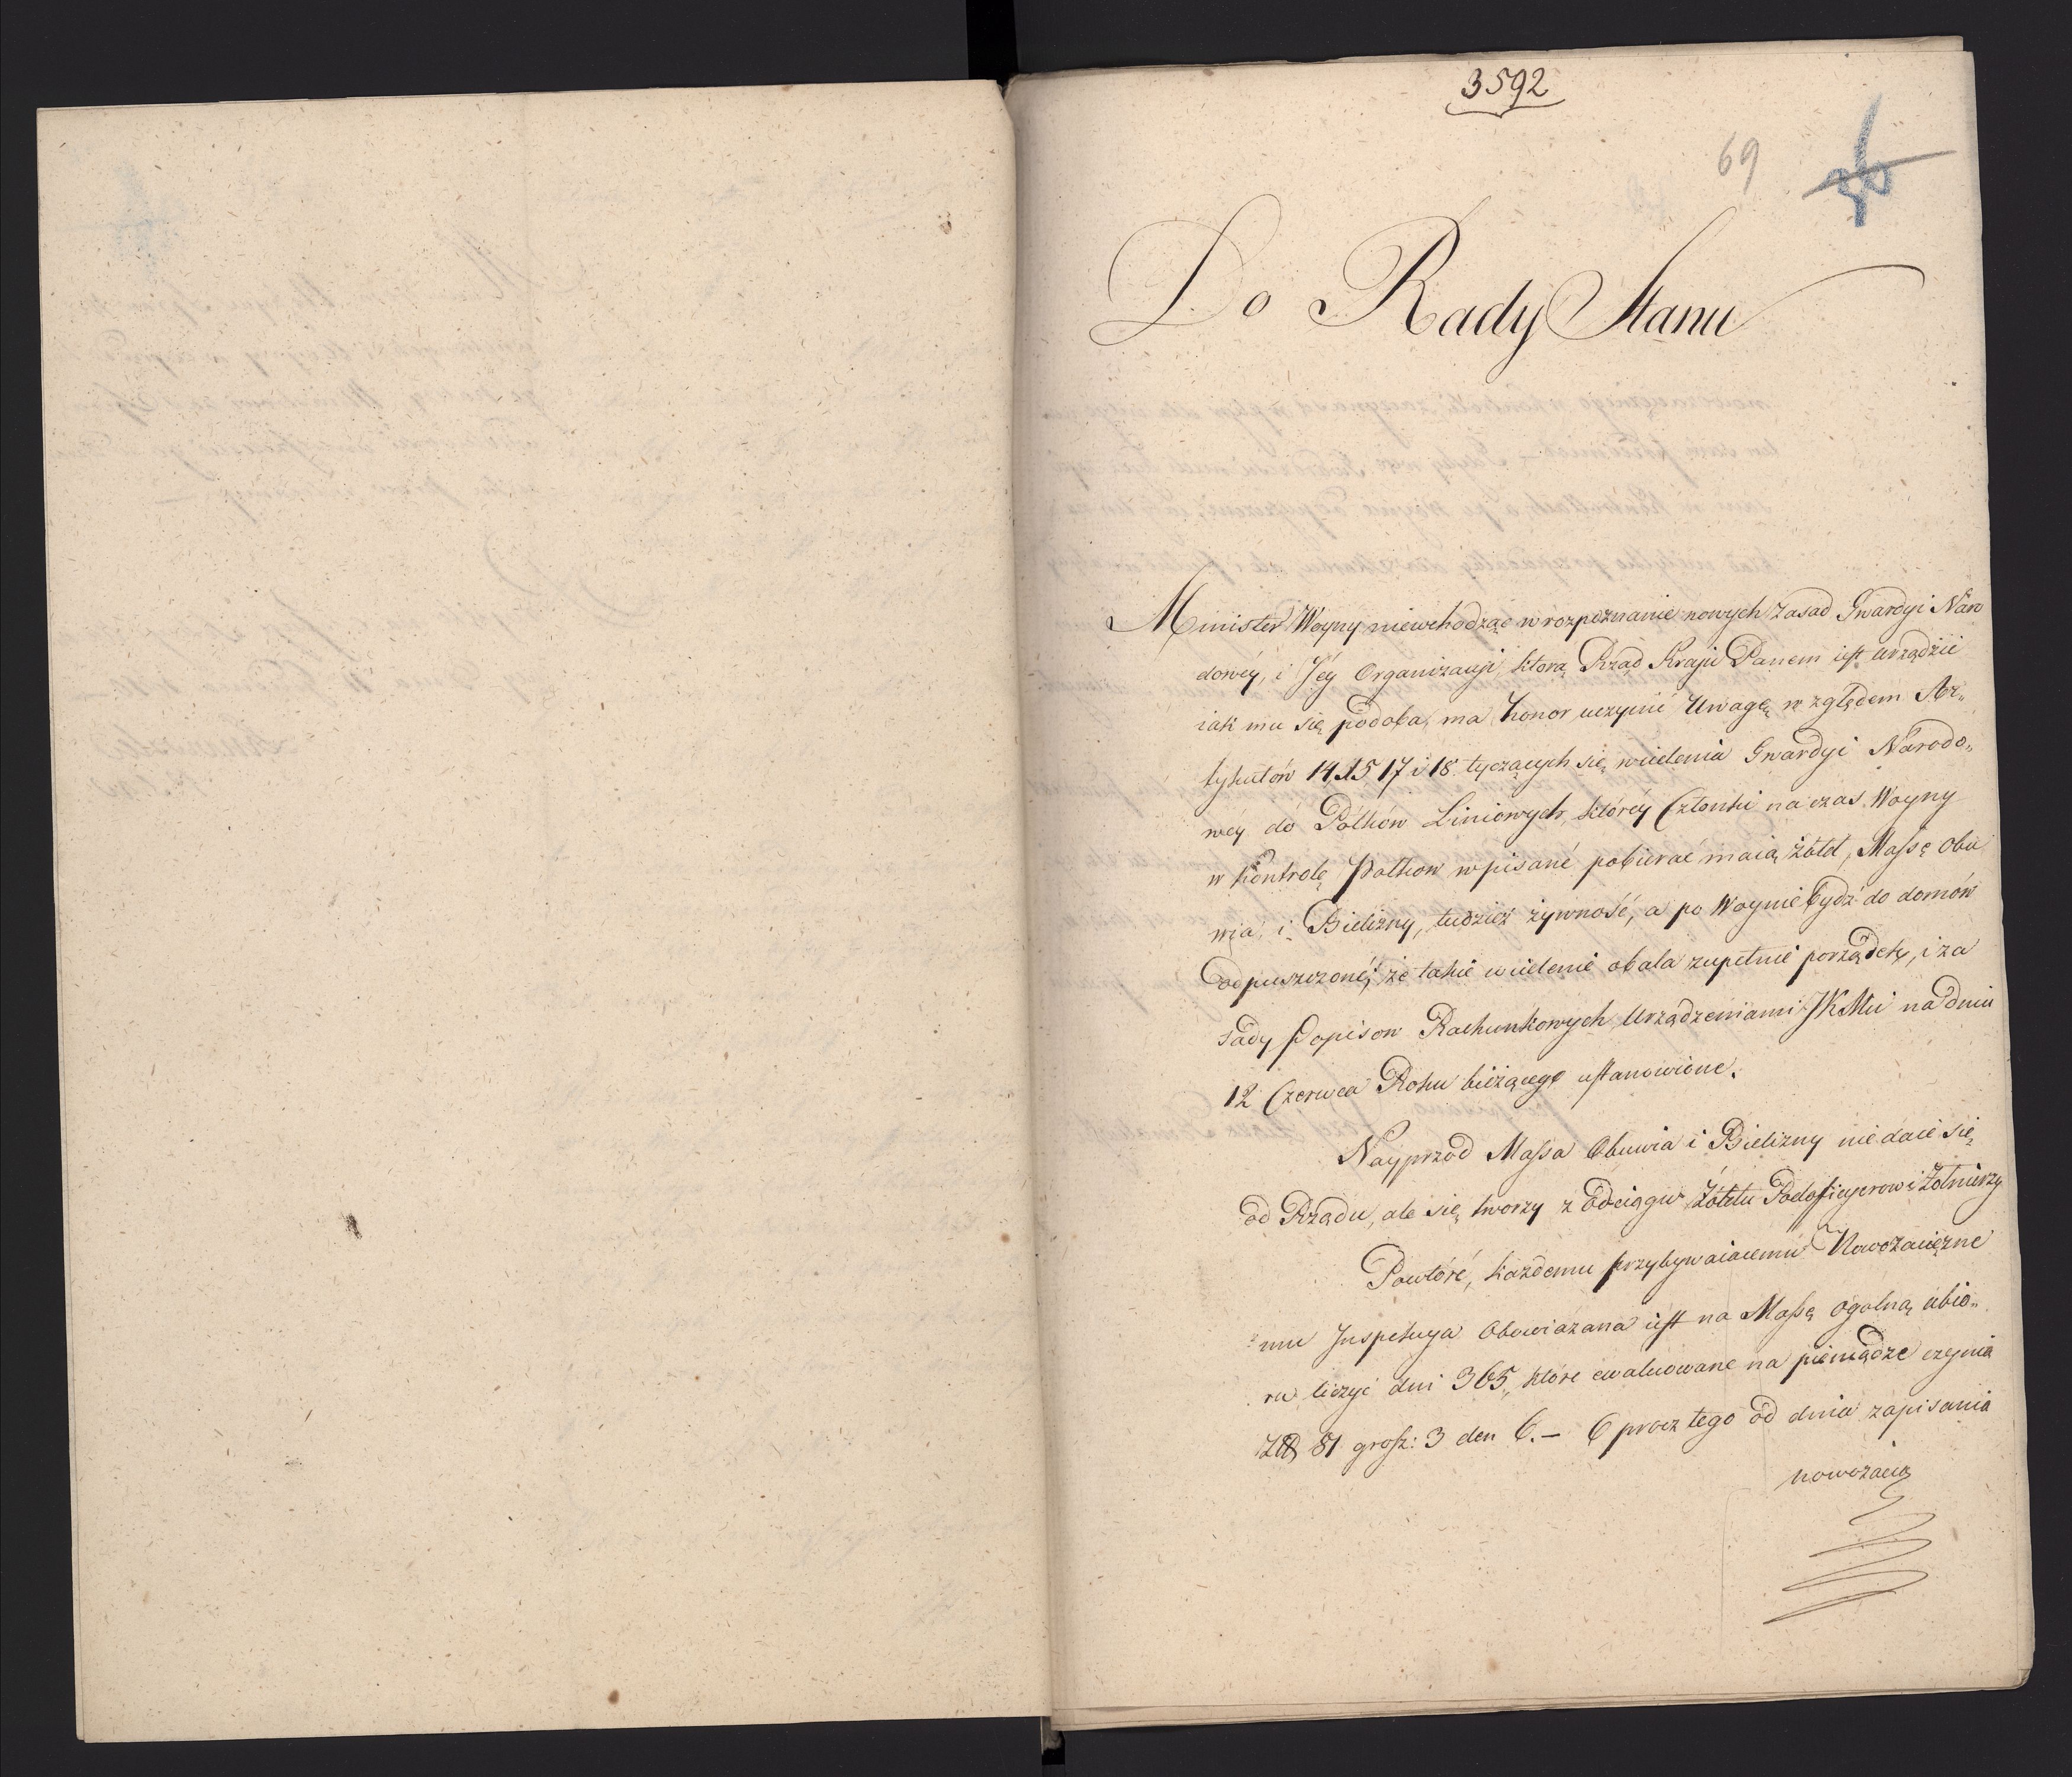 3592
69
Do Rady Stanu
Minister Woyny niewchodząc w rozpoznanie nowych Zasad Gwardyi Naro
dowéy, i Jéy Organizacyi, ktorą Rząd Kraju Panem iest urządzić
iak mu się podoba, ma honor uczynić Uwagę względem Ar„
tykułów 14. 15 17 i 18. tyczących się wcielenia Gwardyi Narodo„
wéy do Półków Liniowych, któréy Członki na czas Woyny
w Kontrolę Połkow wpisané pobierać maią żołd, Massę Obu
wia i Bielizny, tudzież żywność, a po Woynie bydź do domów
odpuszczoné; że takie wcielenie obala zupełnie porządek, i za
sady Popisow Rachunkowych Urządzeniami JKMci na dniu
12 Czerwca Roku bieżącego ustanowione.
Nayprzod Massa Obuwia i Bielizny nie daie się
od Rządu, ale się tworzy z Odciągu Żółdu Podoficyerow i Żołnierzy
Powtóré, każdemu przybywaiacemu Nowozacięzne
mu Inspekcya Obowiązana iest na Massę ogolną ubio„
ru liczyć dni 365, które ewaluowane na pieniądze czynią
81 grosz: 3 den 6. — Oprocz tego od dnia zapisania
nowozacię